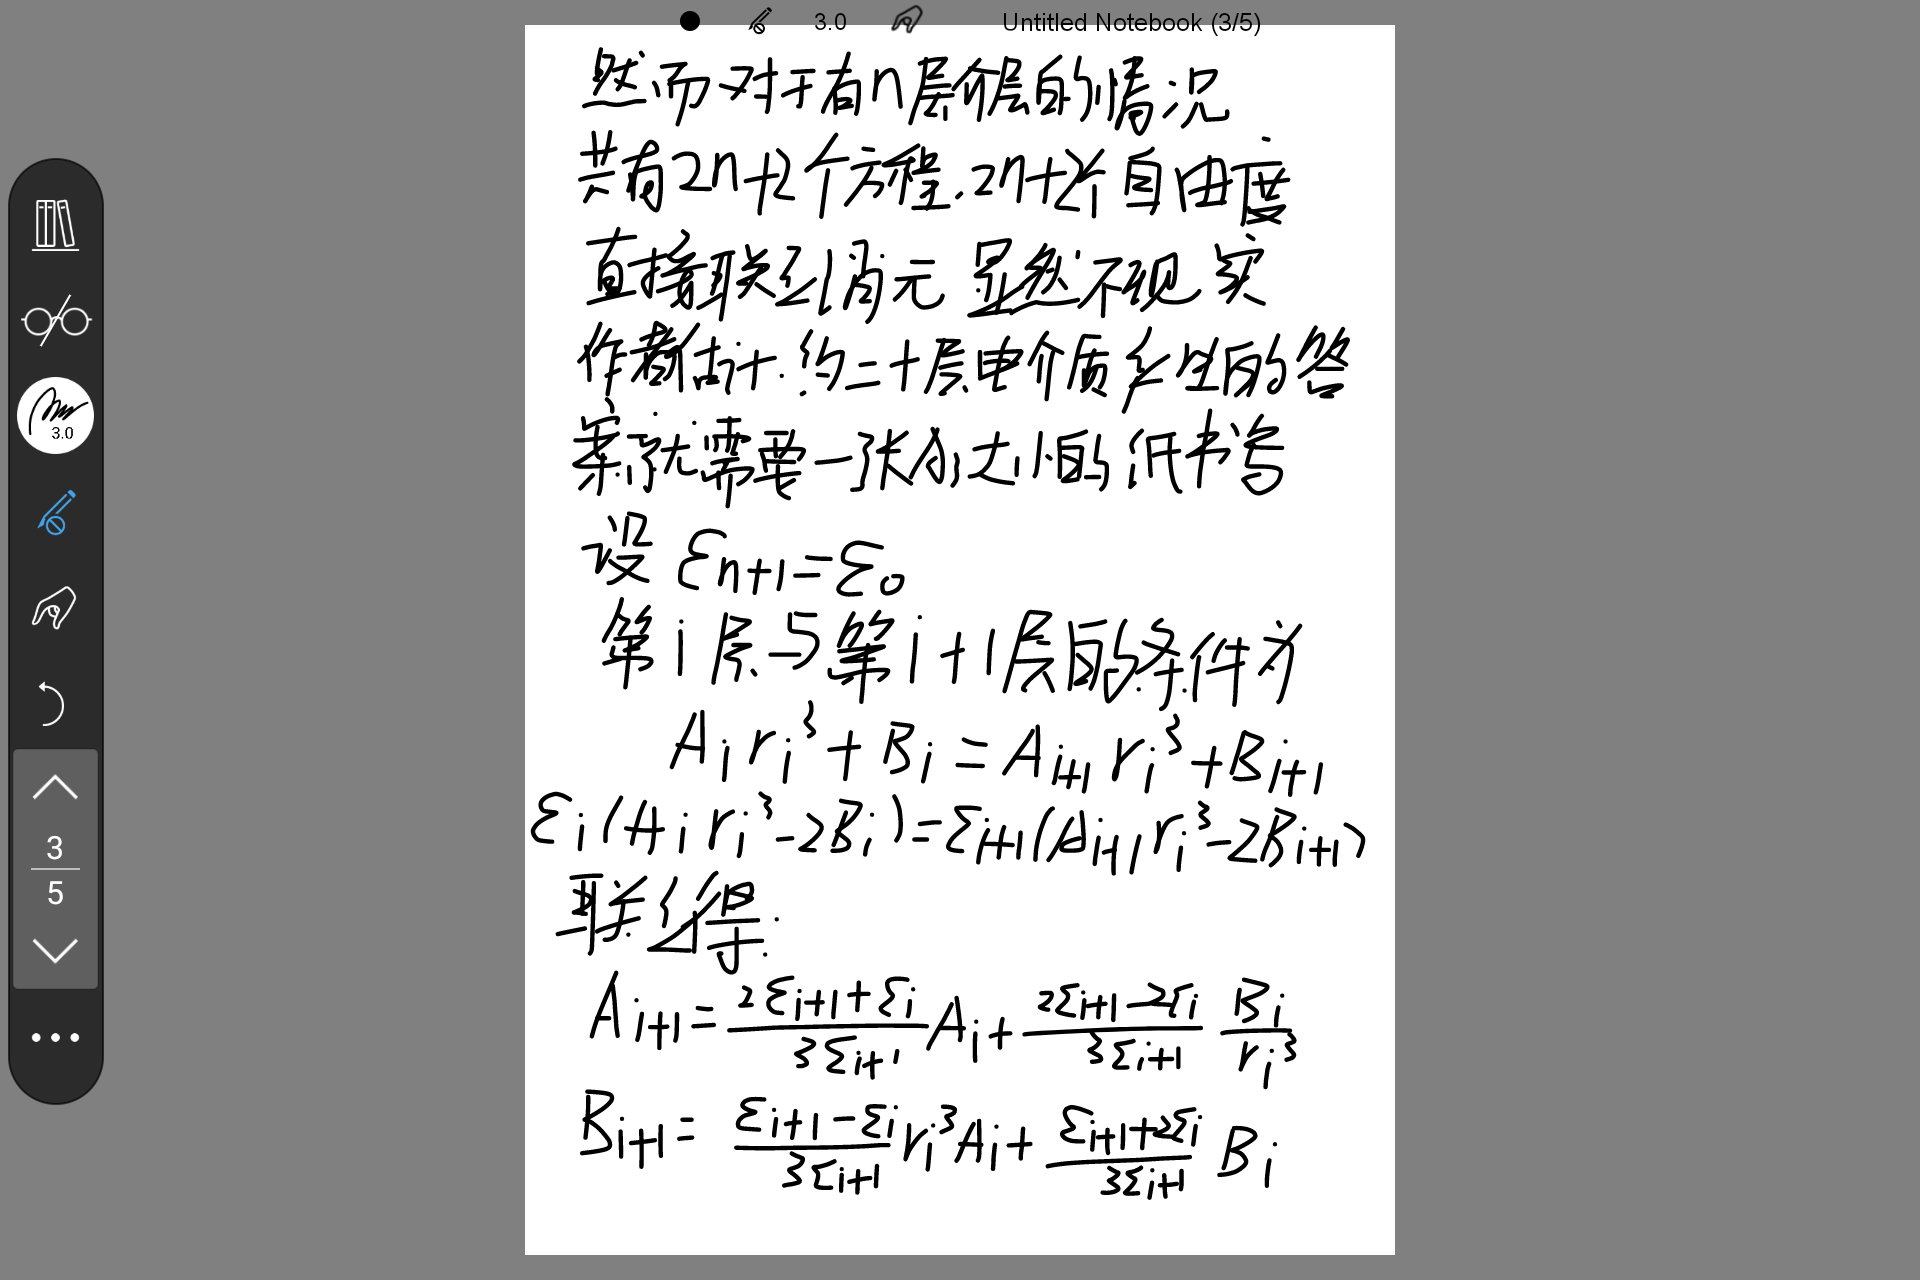 3.0
Untitled Notebook (3/5)
然而对于有n层介层的情况
共有2n+2个方程.2n+2个自由度
直接联立消元 显然不现实
作者估计.约二十层电介质产生的答
案.就需要一张A3大小的纸书写
设 εn+1=ε0
第i层与第i+1层的条件为
Airi³+Bi=Ai+1ri³+Bi+1
εi(Airi³-2Bi)=εi+1(Ai+1ri³-2Bi+1)
联立得:
Ai+1=\frac{2εi+1+εi}{3εi+1}Ai+\frac{2εi+1-2εi}{3εi+1}\frac{Bi}{ri³}
Bi+1=\frac{εi+1-εi}{3εi+1}ri³Ai+\frac{εi+1+2εi}{3εi+1}Bi
3.0
3
5